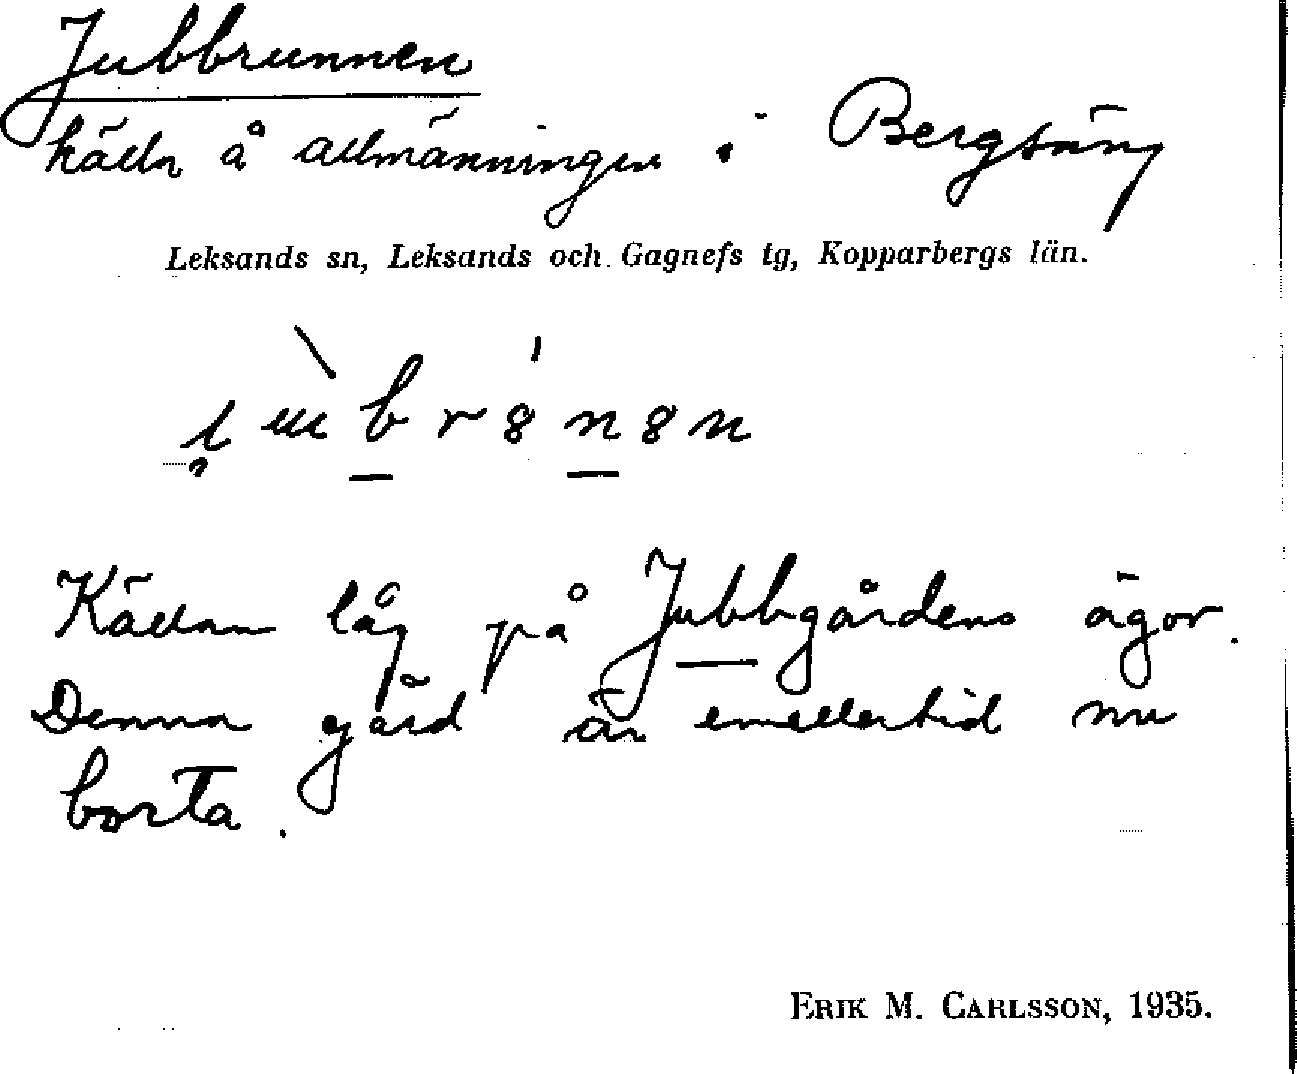 Jubbrunnen
källa å allmänningen i Bergsäng
Leksands sn, Leksands och Gagnefs tg, Kopparbergs län.
Källan låg på Jubbgårdens ägor.
Denna gård är emellertid nu
borta.
ERIK M. CARLSSON, 1935.